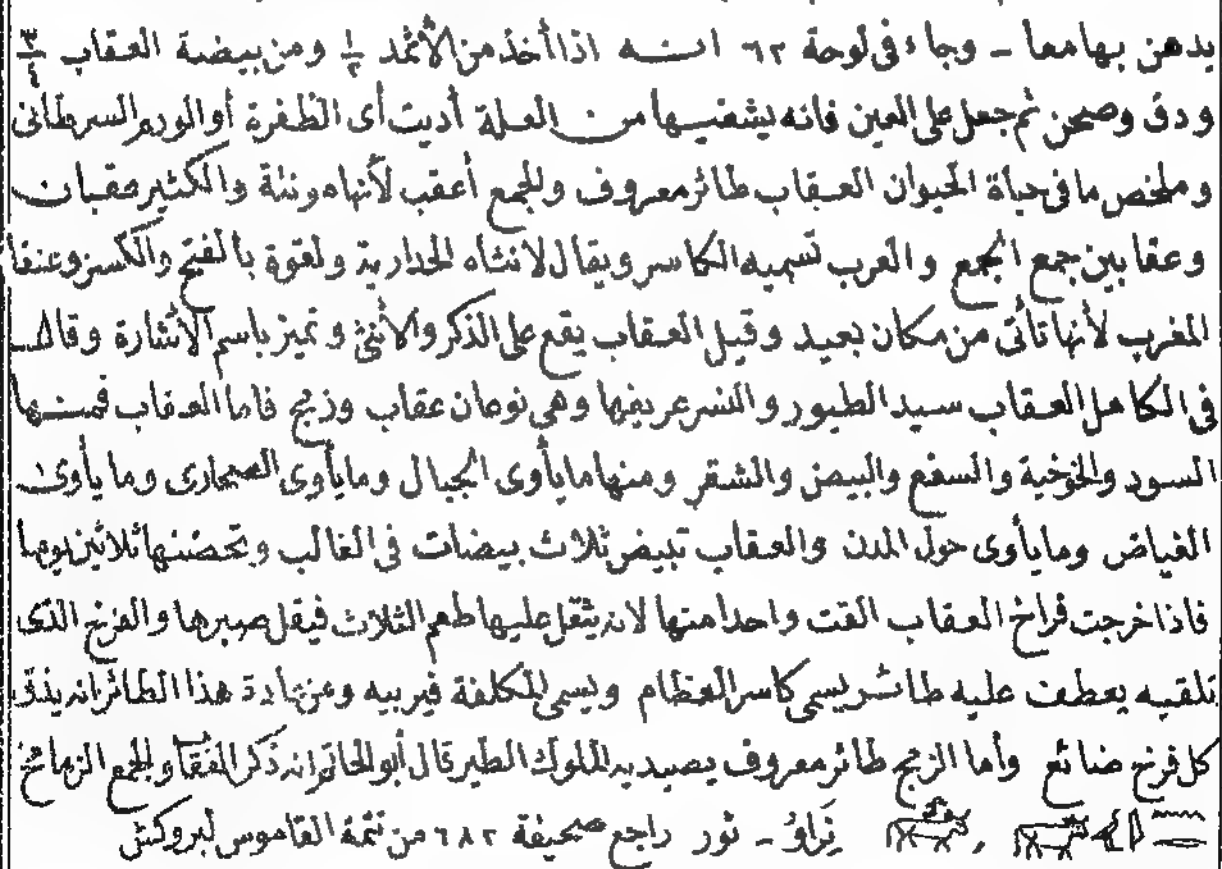 يدهن بها معاً - وجاء فى لوحة ٦٢ انه اذا أخذ من الأثمد ١/٢ ومن بيضة العقاب ٣/٤
ودق وصحن ثم جعل على العين فانه يشفيها من العلة أديت أى الظفرة أو الورم السرطانى
وملخص ما فى حياة الحيوان العقاب طائر معروف والجمع أعقب لأنها مونثة والكثير عقبان
وعقابين جمع الجمع والعرب تسميه الكاسر ويقال لانثاه الخدارية ولقوة بالفتح والكسر وعنقا
المغرب لأنها تأتى من مكان بعيد وقيل العقاب يقع على الذكر والأنثى وتميز باسم الأشارة وقال
فى الكامل العقاب سيد الطيور والنسر عريفها وهى نوعان عقاب وزمج فاما العقاب فمنها
السود والخوخية والسفع والبيض والشقر ومنها ما يأوى الجبال وما يأوى الصحارى وما يأوى
الغياض وما يأوى حول المدن والعقاب تبيض ثلاث بيضات فى الغالب وتحضنها ثلاثين يوما
فاذا خرجت فراخ العقاب القت واحدا منها لانه يثقل عليها طعم الثلاث فيقل صبرها والفرخ الذى
تلقيه يعطف عليه طائر يسمى كاسر العظام ويسمى المكلفة فيربيه ومن عادة هذا الطائر انه يزق
كل فرخ ضائع وأما الزمج طائر معروف يصيد به الملوك الطير قال أبو الحاتم انه ذكر العقاب والجمع الزمامج
ـ ثور راجع صحيفة ٦٨٢ من تتمة القاموس لبروكش